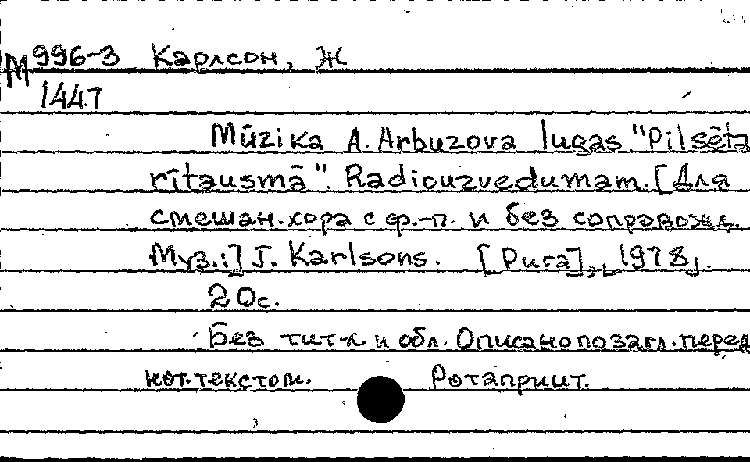 М 996-3 Карлсон, Ж
1447
Mūzika A. Arbuzova lugas "Pilsēta
rītausmā". Radiouzvedumam. [Для
смешан. хора с ф.-п. и без сопровожд.
Муз.:] J. Karlsons. [Рига], 1978.
20с.
Без тит. л. и обл. Описано по загл. перед
нот. текстом. Ротапринт.